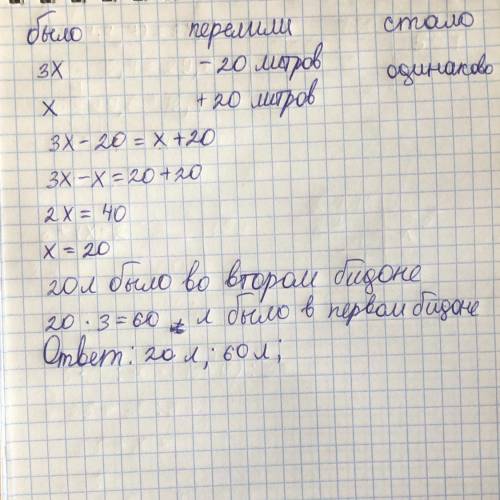 было перелили стало
3x - 20 литров одинаково
x + 20 литров
3x - 20 = x + 20
3x - x = 20 + 20
2x = 40
x = 20
20л было во втором бидоне
20 · 3 = 60 л было в первом бидоне
Ответ: 20 л; 60 л;